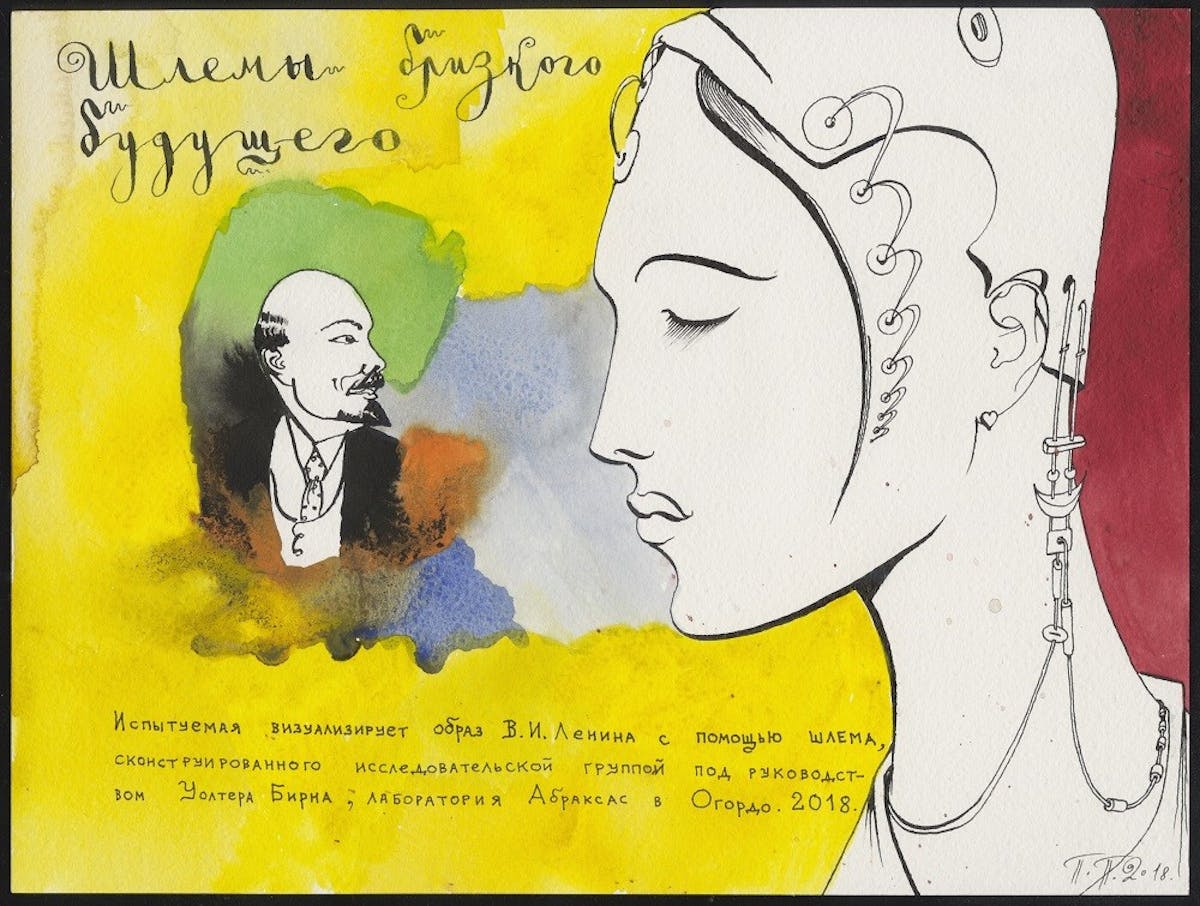 Шлемы бризкого
будущего
Испытуемая визуализирует образ В.И. Ленина с помощью шлема,
сконструированного исследовательской группой под руководст-
вом Уолтера Бирна, лаборатория Абраксас в Огордо. 2018.
П.П. 2018.